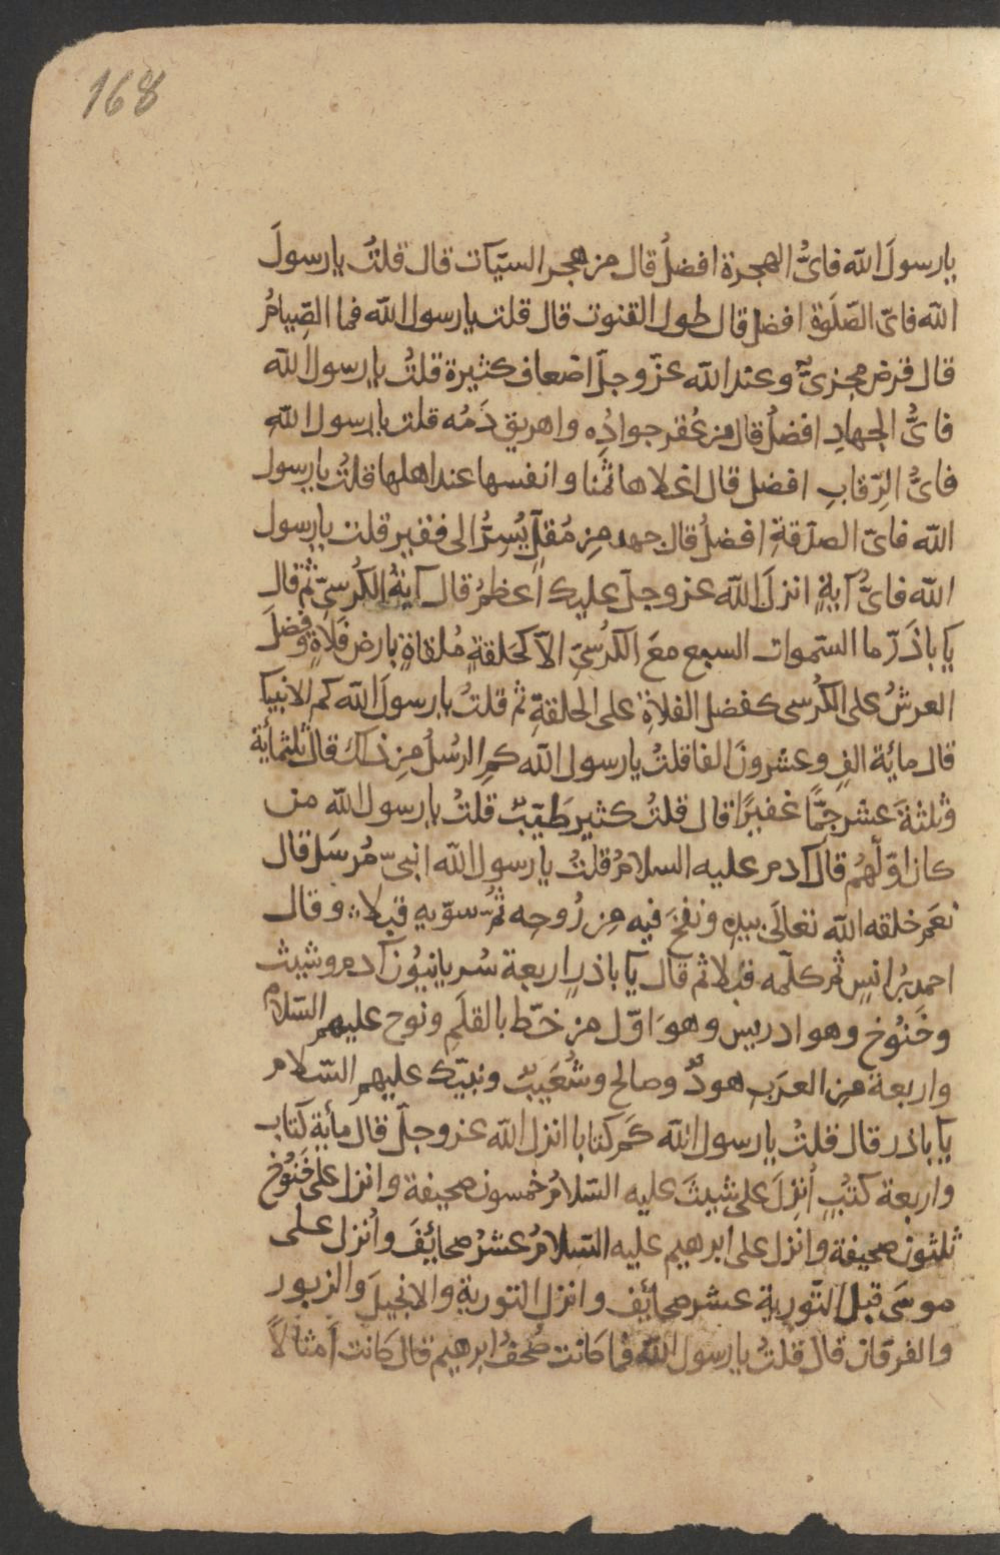 168
يارسولَ الله فاىُّ الهجرة افضلُ قال من هجر السيّآت قال قلتُ يارسولَ
الله فاىّ الصَّلَوة افضل قال طول القنوت قال قلت يارسول الله فما الصِّيامُ
قال فرض مجزىٌ وعند الله عزّ وجلّ اضعاف كثيرة قلتُ يا رسول الله
فاىُّ الجهادِ افضلُ قال من عُقر جوادُه واهريق دَمُه قلت يا رسول اللهِ
فاىُّ الرّقابِ افضل قال اغلاها ثمنا وانفسها عند اهلها قلتُ يارسول
الله فاىّ الصدَقةِ افضلُ قال جهد مِن مُقلٍّ يُسِرُّ الى فقير قلت يارسول
الله فاىُّ آيةٍ انزلَ الله عز وجلّ عليك اعظمُ قال آيةُ الكُرسىّ ثم قال
يَا باذَرّ ما السّموات السبع معَ الكرُسىِّ الاّ كحَلقةٍ مُلقاةٍ بارض فَلاةٍ وفضلَ
العرشُ على الكُرسى كفضل الفلاةِ على الحلقةِ ثم قلتُ يا رسولَ الله كم الانبيا
قال مائة الفٍ وعشرونَ الفا قلتُ يارسول الله كمِ الرسُلُ مِن ذلك قال ثلثمائة
وثلثةَ عشر جمًّا غفيرًا قال قلتُ كثير طَيّبٌ قلتُ يا رسول الله من
كان اوّلَهُم قال آدم عليه السلامُ قلتُ يا رسول الله انبىّ مُرسَل قال
نعَم خلقه الله تعالَى بيدهِ ونفخَ فيه مِن رُوحِه ثمَّ سوّيه قبلا وقال
احمد بنُ انسٍ ثم كلّمه قبْلا ثم قال يَا باذرٍ اربعة سُريانيوُن آدم وشيث
وخَنُوخ وهو ادريس وهوَ اوّل من خطّ بالقلَمِ ونوح عليهم السّلام
واربعة مِن العرَبِ هودٌ وصالح وشُعَيبٌ ونبيّك عليهم السّلام
يَا باذر قال قلتُ يا رسول الله كَم كتابا انزل الله عز وجلّ قال مأية كتاب
واربعة كتُبٍ اُنزِلَ على شيثَ عليه السّلامُ خمسون صحيفة وانزل على خَنُوخ
ثلثون صحيفة واُنزل على ابرهيم عليه السّلامُ عشرُ صحائفَ واُنزل على
موسَى قبل التّورية عشر صحائف وانزل التورية والانجيلَ والزبور
والفرقان قال قلتُ يا رسول الله فما كَانت صُحفُ ابرهيم قال كَانت اَمثالاً